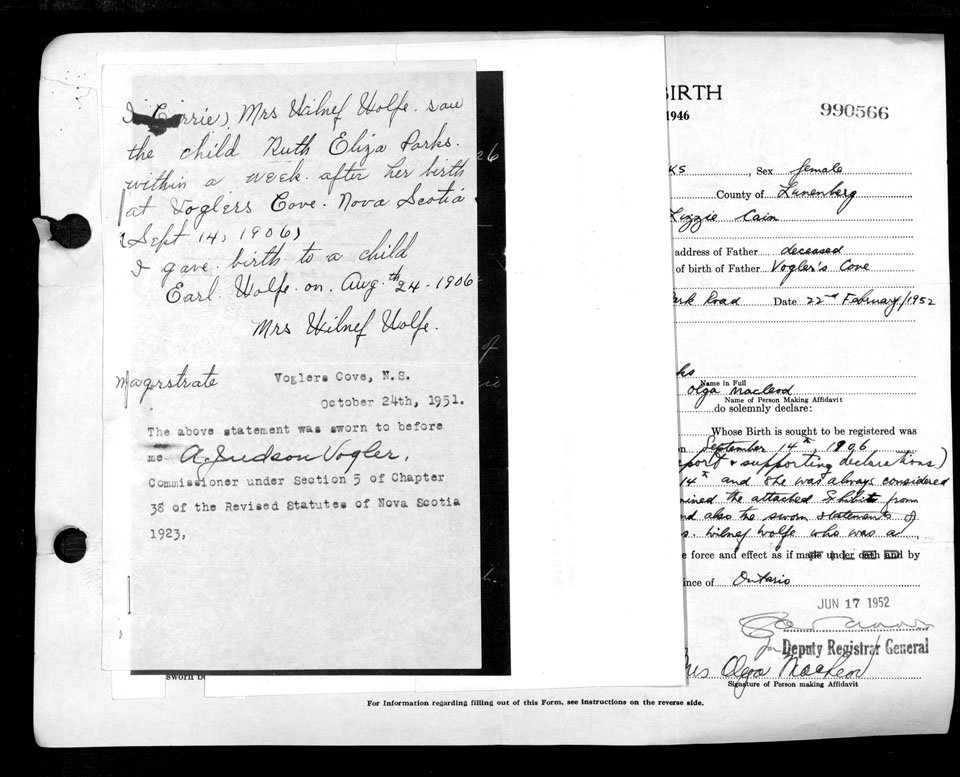 Mrs Wilnef Wolfe. saw
the child Ruth Eliza Parks.
within a week. after her birth
at Voglers Cove. Nova Scotia
(Sept 14, 1906)
I gave. birth to a child
Earl. Wolfe. on. Aug. th 24 - 1906
Mrs Wilnef Wolfe.
Magerstrate
Voglers Cove, N.S.
October 24th, 1951.
The above statement was sworn to before
me A. Judson Vogler.
Commissioner under Section 5 of Chapter
38 of the Revised Statutes of Nova Scotia
1923,
26
of
sworn be
BIRTH
1946
990566
ks , Sex female
County of Lunenberg
Lizzie Cain
address of Father deceased
of birth of Father Vogler's Cove
Park Road Date 22nd February/1952
ks
Name in Full
Olga Macleod
Name of Person Making Affidavit
do solemnly declare:
Whose Birth is sought to be registered was
n September 14th, 1906
port & supporting declarations)
14th and she was always considered
mined the attached Exhibit from
nd also the sworn statements of
s. Wilnef Wolfe who was a
e force and effect as if made under oath and by
ince of Ontario
JUN 17 1952
Deputy Registrar General
Mrs Olga Macleod
Signature of Person making Affidavit
For Information regarding filling out of this Form, see instructions on the reverse side.